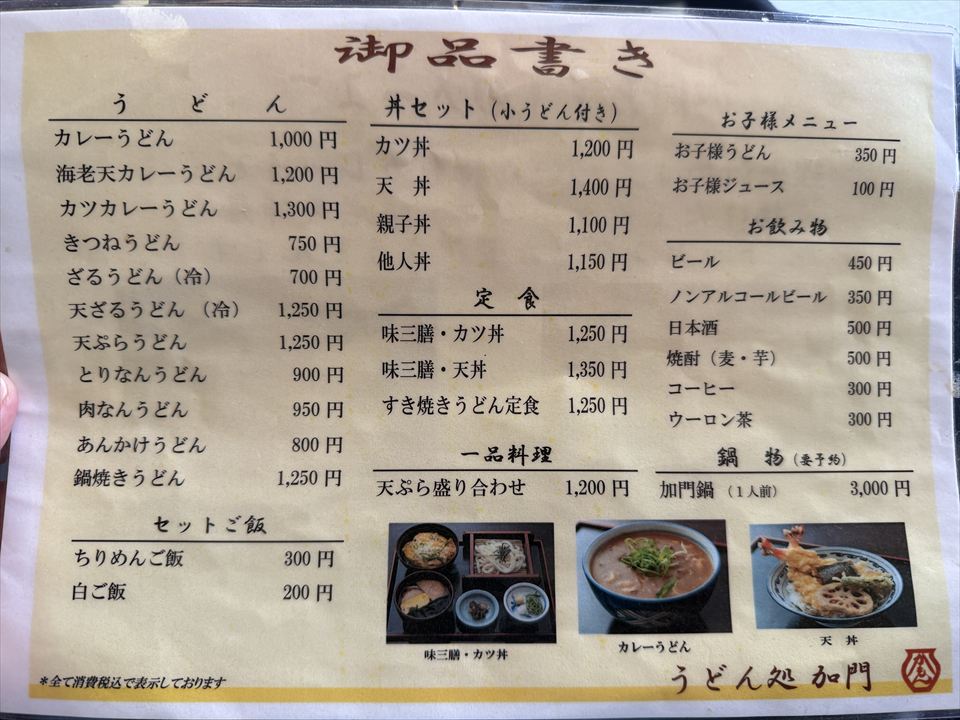 御品書き
うどん
カレーうどん 1,000 円
海老天カレーうどん 1,200 円
カツカレーうどん 1,300 円
きつねうどん 750 円
ざるうどん（冷） 700 円
天ざるうどん（冷） 1,250 円
天ぷらうどん 1,250 円
とりなんうどん 900 円
肉なんうどん 950 円
あんかけうどん 800 円
鍋焼きうどん 1,250 円
セットご飯
ちりめんご飯 300 円
白ご飯 200 円
＊全て消費税込で表示しております
丼セット（小うどん付き）
カツ丼 1,200 円
天 丼 1,400 円
親子丼 1,100 円
他人丼 1,150 円
定 食
味三膳・カツ丼 1,250 円
味三膳・天丼 1,350 円
すき焼きうどん定食 1,250 円
一品料理
天ぷら盛り合わせ 1,200 円
お子様メニュー
お子様うどん 350 円
お子様ジュース 100 円
お飲み物
ビール 450 円
ノンアルコールビール 350 円
日本酒 500 円
焼酎（麦・芋） 500 円
コーヒー 300 円
ウーロン茶 300 円
鍋 物（要予約）
加門鍋（１人前） 3,000 円
味三膳・カツ丼
カレーうどん
天 丼
うどん処 加門